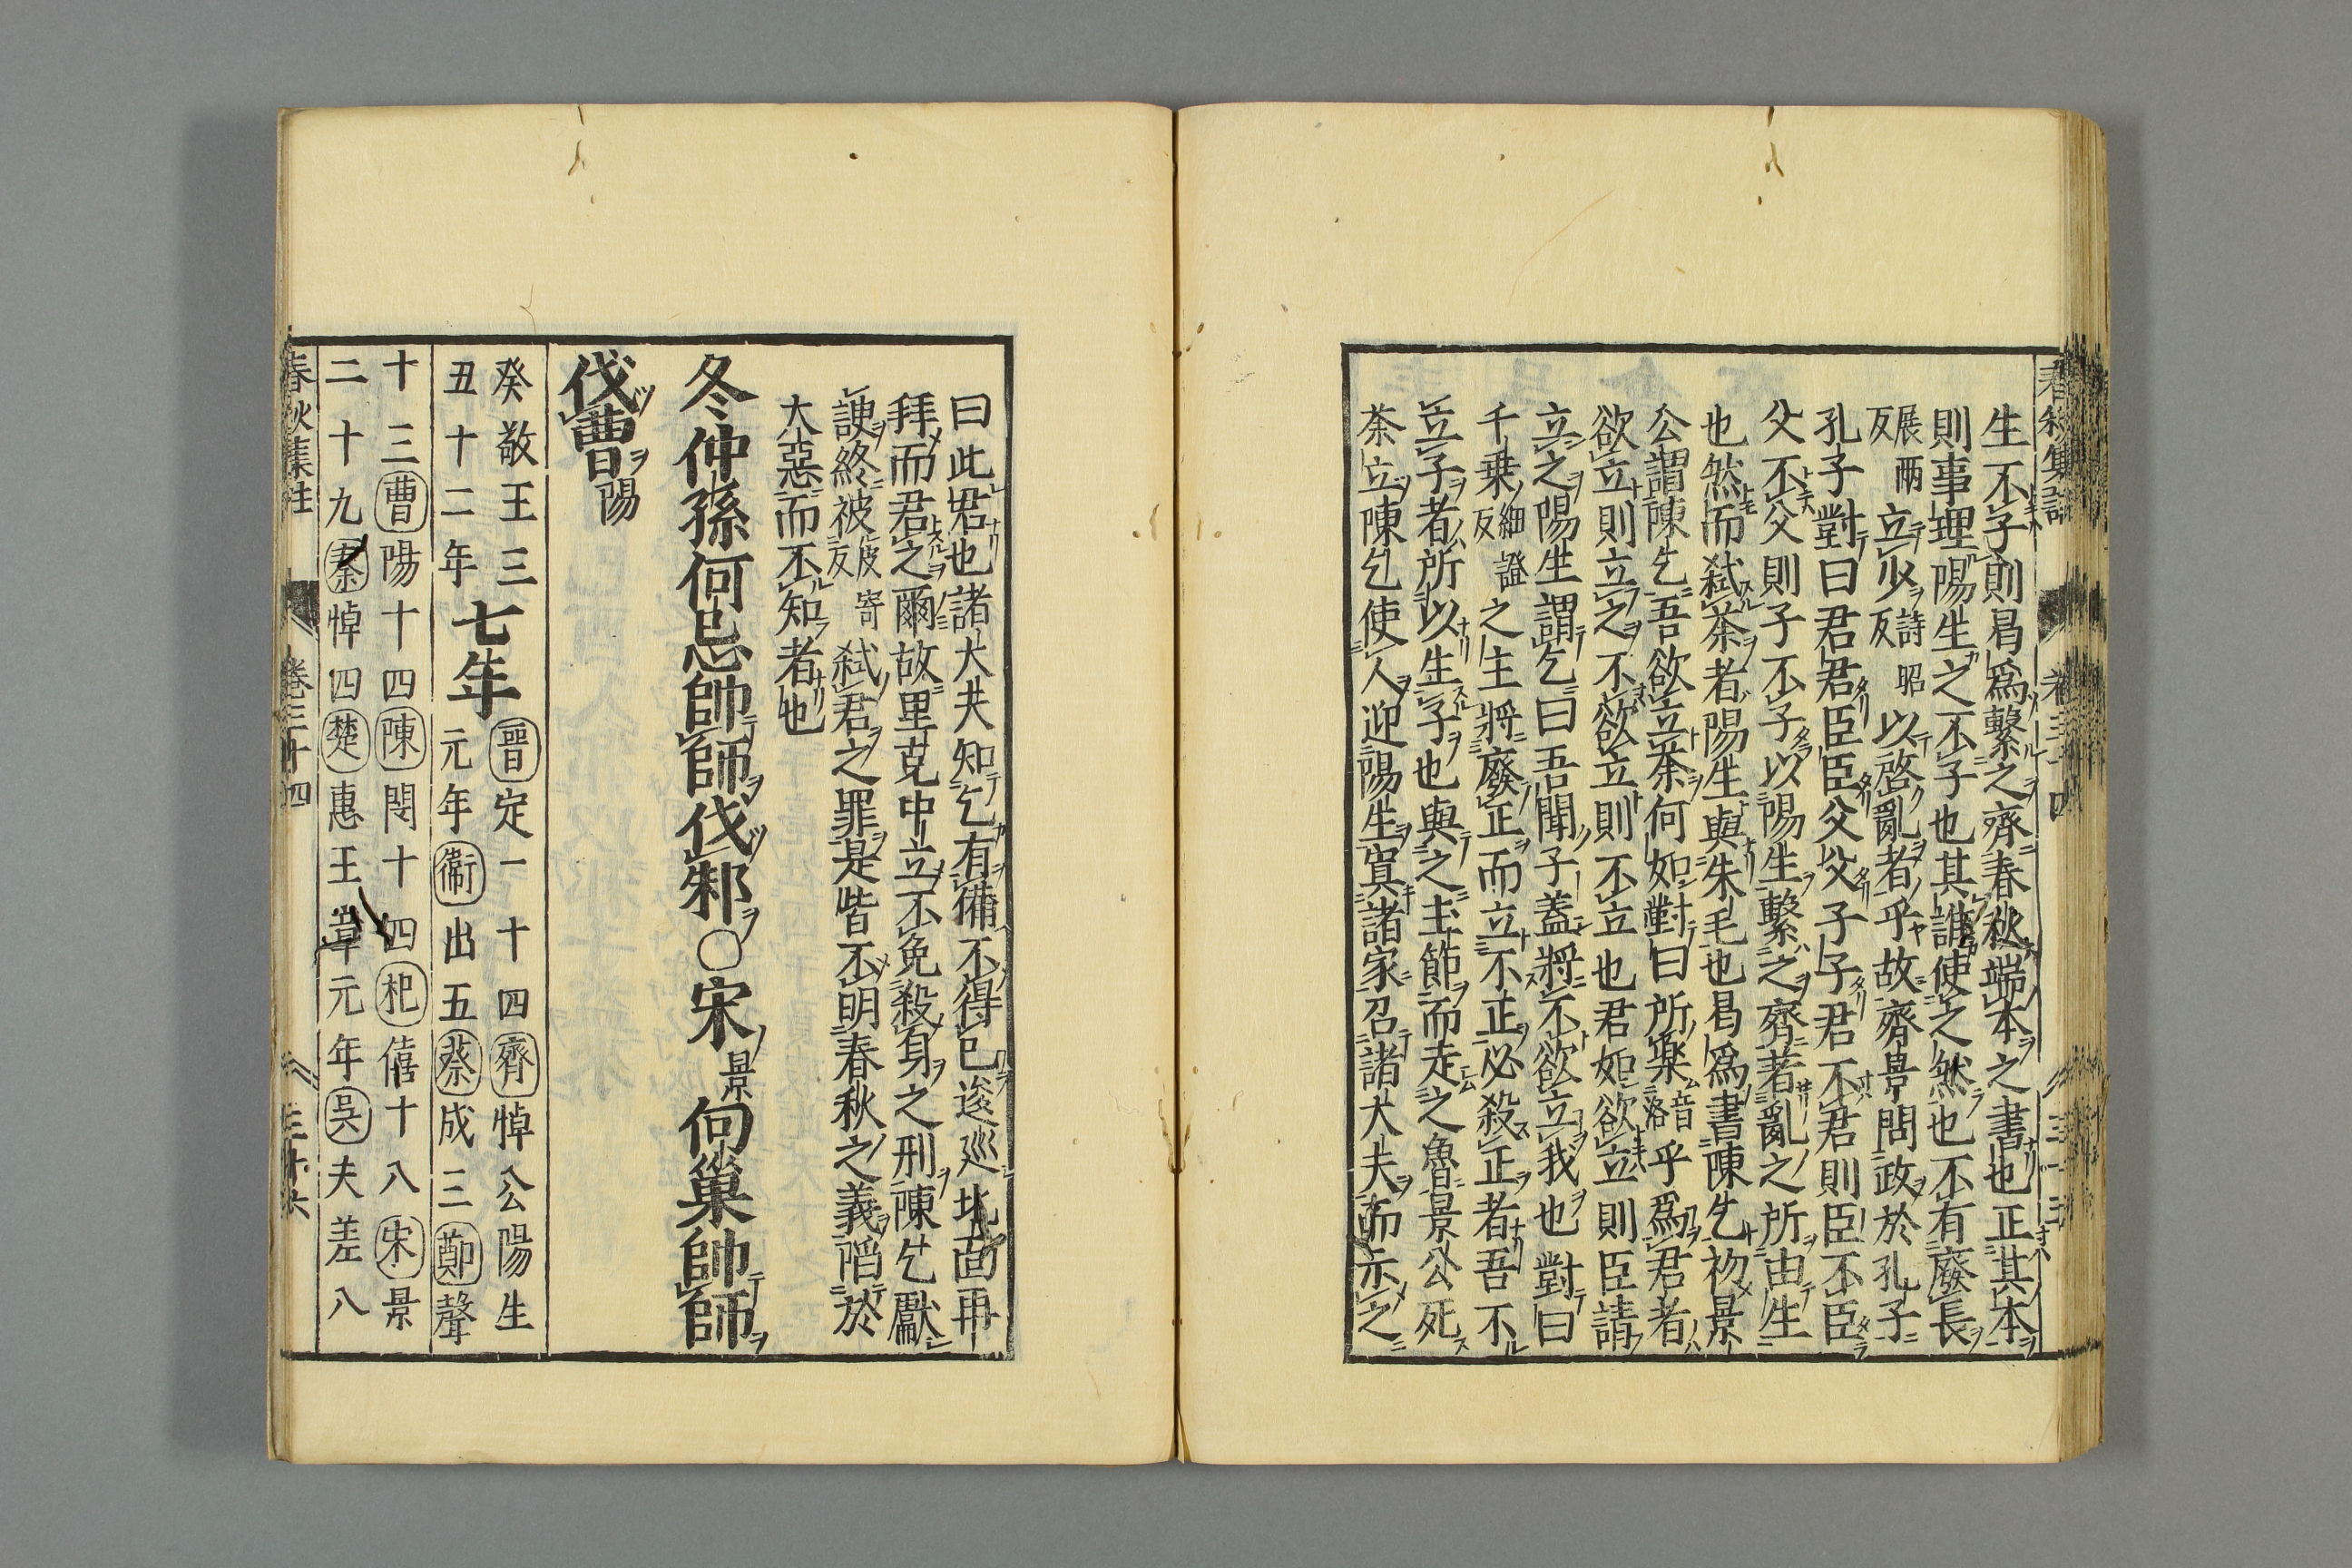 生不子則曷爲繫之齊春秋端本之書也正其本
則事理陽生之不子也其誰使之然也不有廢長
展兩反立少詩昭反以啓亂者乎故齊景問政於孔子
孔子對曰君君臣臣父父子子君不君則臣不臣
父不父則子不子以陽生繫之齊著亂之所由生
也然而弑荼者陽生與朱毛也曷爲書陳乞初景
公謂陳乞吾欲立荼何如對曰所樂音洛乎爲君者
欲立則立之不欲立則不立也君如欲立則臣請
立之陽生謂乞曰吾聞子蓋將不欲立我也對曰
千乗細證反之主將廢正而立不正必殺正者吾不
立子者所以生子也與之玉節而走之魯景公死
荼立陳乞使人迎陽生寘諸家召諸大夫而示之
曰此君也諸大夫知乞有備不得已逡巡北面再
拜而君之爾故里克中立不免殺身之刑陳乞獻
諛終被皮寄反弑君之罪是皆不明春秋之義䧟於
大惡而不知者也
冬仲孫何忌帥師伐邾○宋景向巢帥師
伐曹陽
癸敬王三
丑十二年七年晉定一十四齊悼公陽生
元年衞出五蔡成三鄭聲
十三曹陽十四陳閔十四杞僖十八宋景
二十九秦悼四楚惠王章元年吳夫差八
春秋集註 卷三十四 三十六